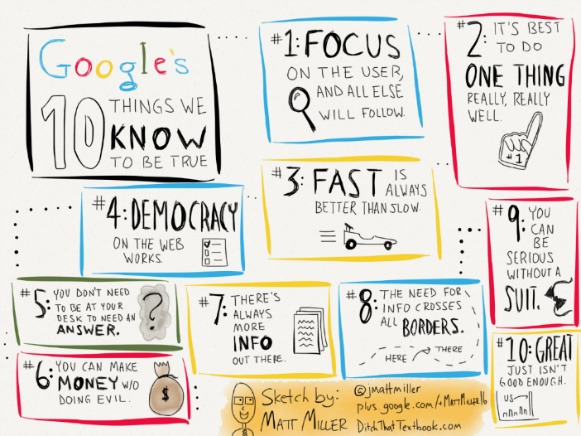 Google's
10 THINGS WE
KNOW
TO BE TRUE
#1: FOCUS
ON THE USER,
AND ALL ELSE
WILL FOLLOW.
#2: IT'S BEST
TO DO
ONE THING
REALLY, REALLY
WELL.
#1
#3: FAST IS
ALWAYS
BETTER THAN SLOW.
#4: DEMOCRACY
ON THE WEB
WORKS.
#5: YOU DON'T NEED
TO BE AT YOUR
DESK TO NEED AN
ANSWER.
?
#6: YOU CAN MAKE
MONEY W/O
DOING EVIL.
$
#7: THERE'S
ALWAYS
MORE
INFO
OUT THERE.
#8: THE NEED FOR
INFO CROSSES
ALL BORDERS.
HERE THERE
#9: YOU
CAN
BE
SERIOUS
WITHOUT A
SUIT.
#10: GREAT
JUST ISN'T
GOOD ENOUGH.
US
Sketch by:
MATT MILLER
@jmattmiller
plus.google.com/+MattMiller16
DitchThatTextbook.com